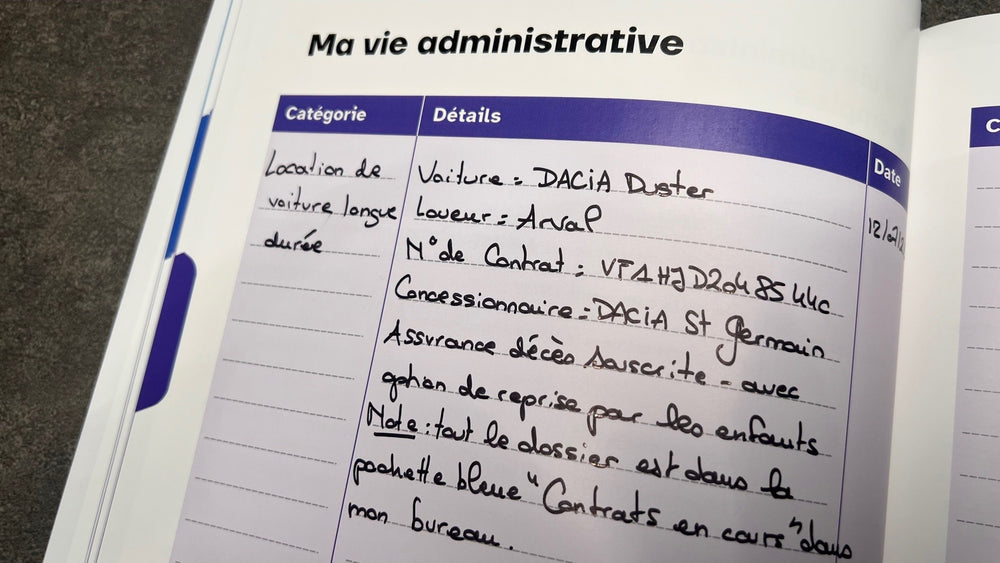 Ma vie administrative
Catégorie
Détails
Date
Location de
voiture longue
durée
Voiture = DACIA Duster
Loueur = Arval
N° de Contrat : VF1HJD2048544c
Concessionnaire = DACIA St Germain
Assurance décès souscrite - avec
option de reprise par les enfants
Note : tout le dossier est dans la
pochette bleue "Contrats en cours" dans
mon bureau.
C